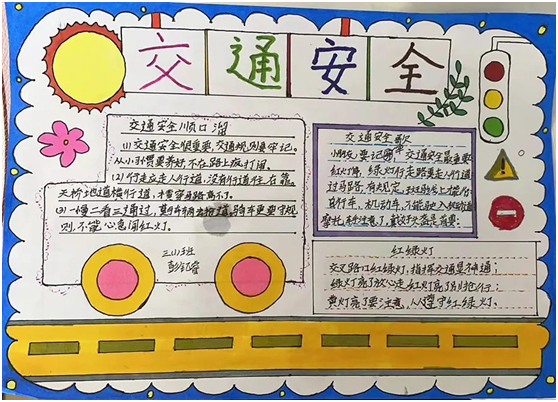 交通安全
交通安全顺口溜
(1)交通安全很重要,交通规则要牢记。
从小就要养好不在路上玩打闹。
(2)行走应走人行道,没有行道往右靠
天桥地道横行道,横穿马路离不了。
(3)一慢二看三通过,
骑车更要守规
则,不能心急闯红灯。
三(1)班
交通安全歌
小朋友要记牢 交通安全最重要
红灯停,绿灯行走路要走人行道
过马路,有规定,
自行车,机动车,不能驶入
红绿灯
交叉路口红绿灯,指挥交通显神通;
绿灯亮了放心走,红灯亮了别抢行;
黄灯亮了要注意,人人遵守红绿灯。